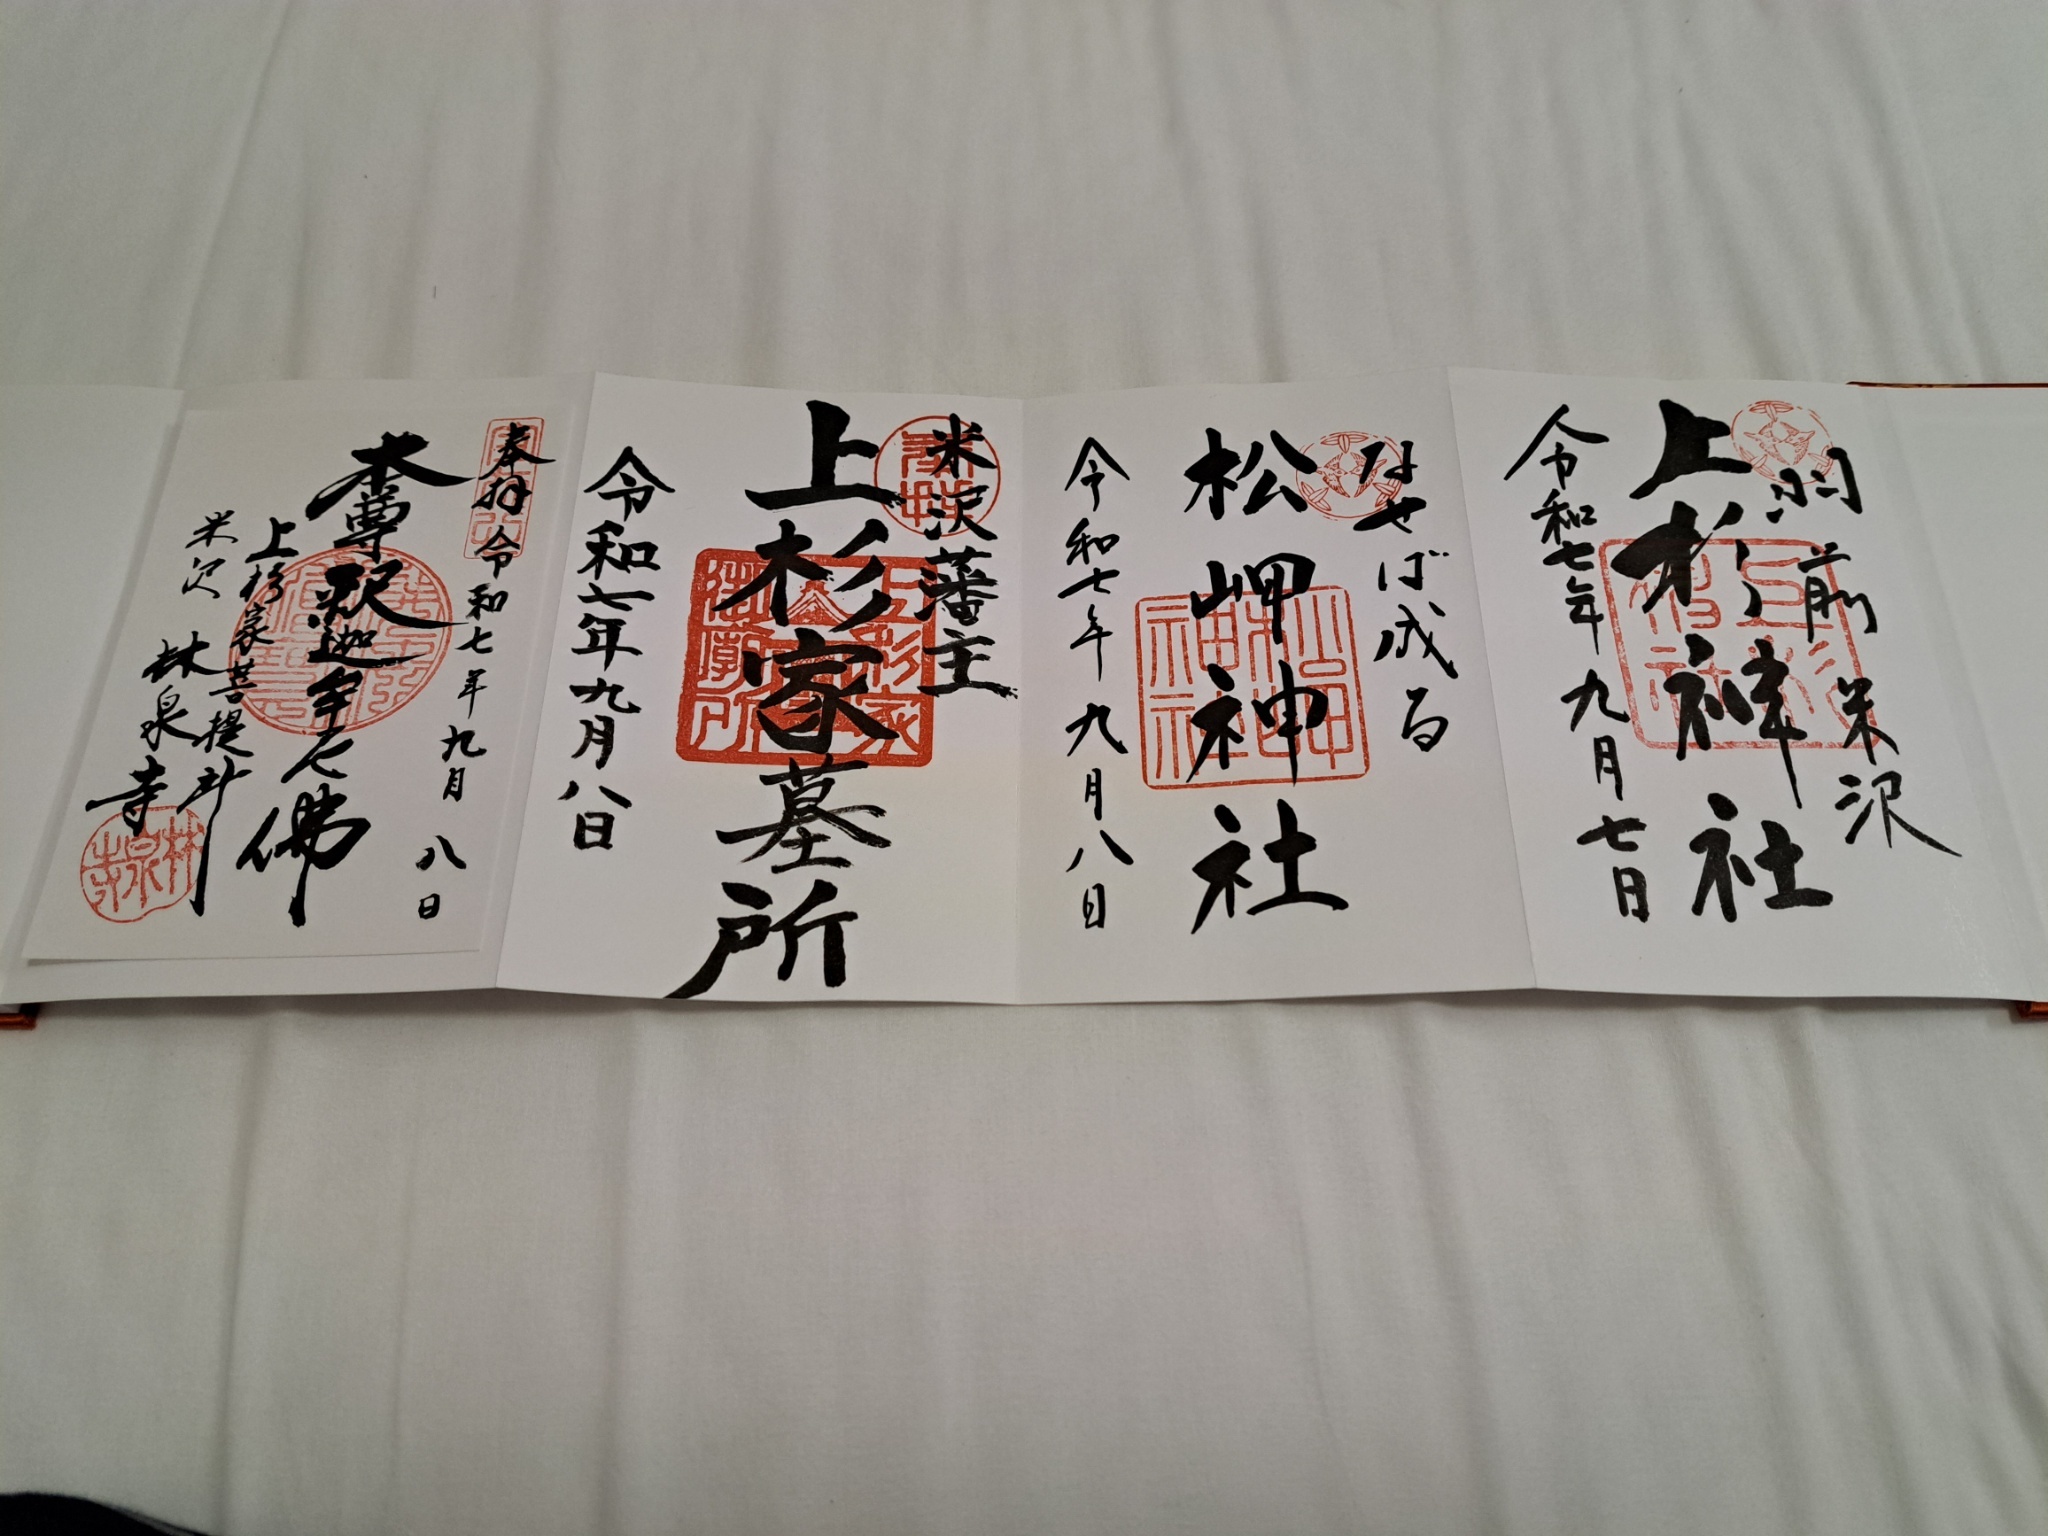 羽前米沢
上杉神社
令和七年九月七日
なせば成る
松岬神社
令和七年九月八日
米沢藩主
上杉家墓所
令和七年九月八日
奉拝 令和七年九月八日
本尊釈迦牟尼佛
上杉家菩提所
米沢 林泉寺